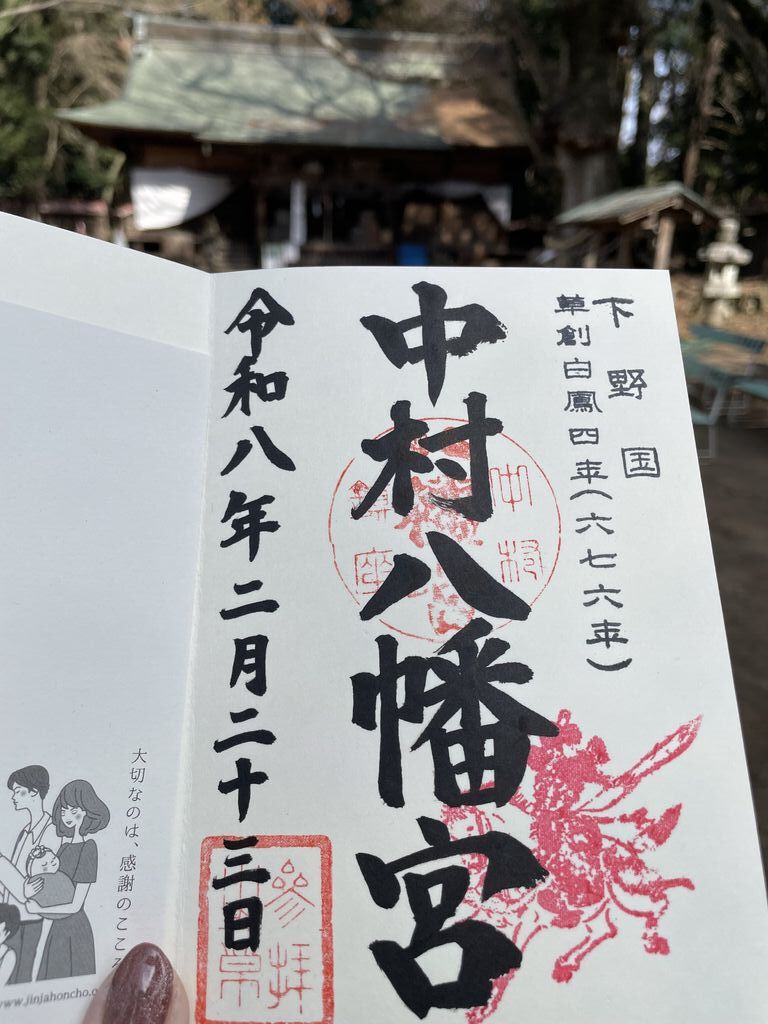 下野国
草創白鳳四年(六七六年)
中村八幡宮
中村
鎮座
令和八年二月二十三日
参拝
大切なのは、感謝のここ
www.jinjahoncho.